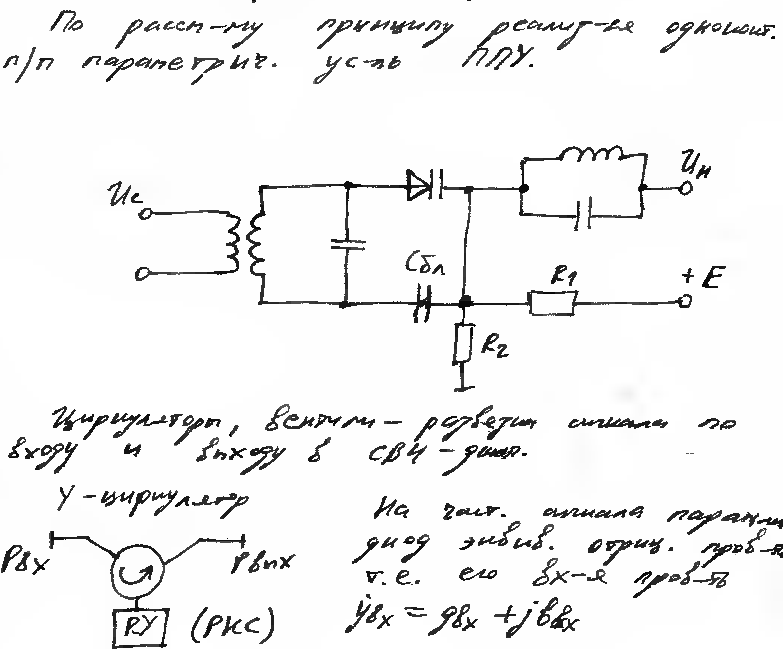 По рассм-му принципу реализ-ся одноконт.
п/п параметрич. ус-ль ППУ.
Uc
Uн
Cбл
R1
+ E
R2
Циркуляторы, вентили – разветвл сигнала по
входу и выходу в СВЧ-диап.
Y-циркулятор
Pвх
Pвых
РУ (РКС)
На част. сигнала парамич
диод эквив. отриц. пров-ть
т.е. его вх-я пров-ть
ẏвх = gвх + jbвх